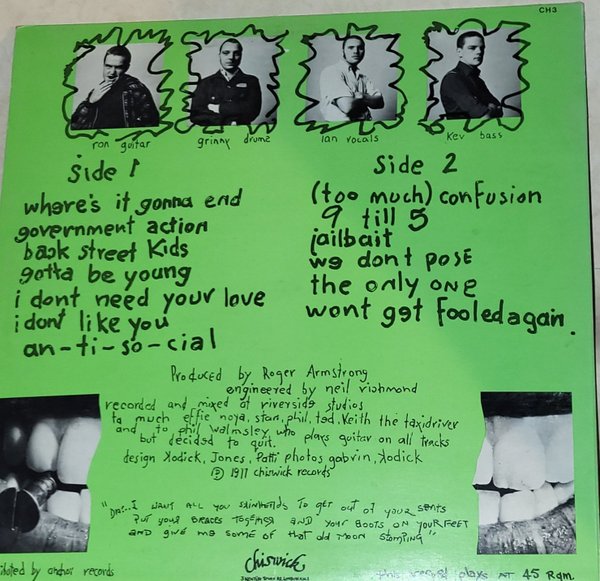 CH3
ron guitar
grinny drums
Ian vocals
Kev bass
Side 1
where's it gonna end
government action
back street kids
gotta be young
i dont need your love
i dont like you
an-ti-so-cial
Side 2
(too much) confusion
9 till 5
jailbait
we dont pose
the only one
wont get fooled again.
Produced by Roger Armstrong
engineered by neil richmond
recorded and mixed at riverside studios
ta much effie noya, stan, phil, ted, Keith the taxidriver
and to phil walmsley who plays guitar on all tracks
but decided to quit.
design Kodick, Jones, Patti photos gabrin, Kodick
℗ 1977 chiswick records
I WANT ALL YOU SKINHEADS TO GET OUT OF YOUR SEATS
PUT YOUR BRACES TOGETHER AND YOUR BOOTS ON YOUR FEET
AND GIVE ME SOME OF THAT old MOON STOMPING"
chiswick
by anchor records
this record plays AT 45 Rpm.